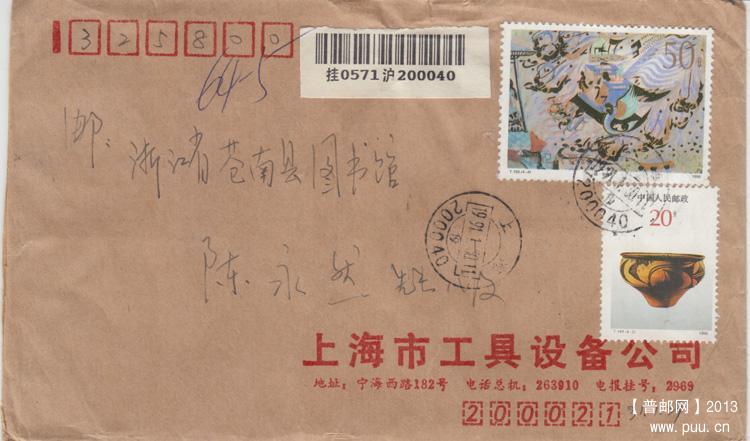 325800
645
挂0571沪200040
50分
邮:浙江省苍南县图书馆
陈永然 先生 收
上海
1991
200040
200040
中国人民邮政
20分
1990
上海市工具设备公司
地址:宁海西路182号 电话总机:263910 电报挂号:2969
200021
【普邮网】2013
www.puu.cn